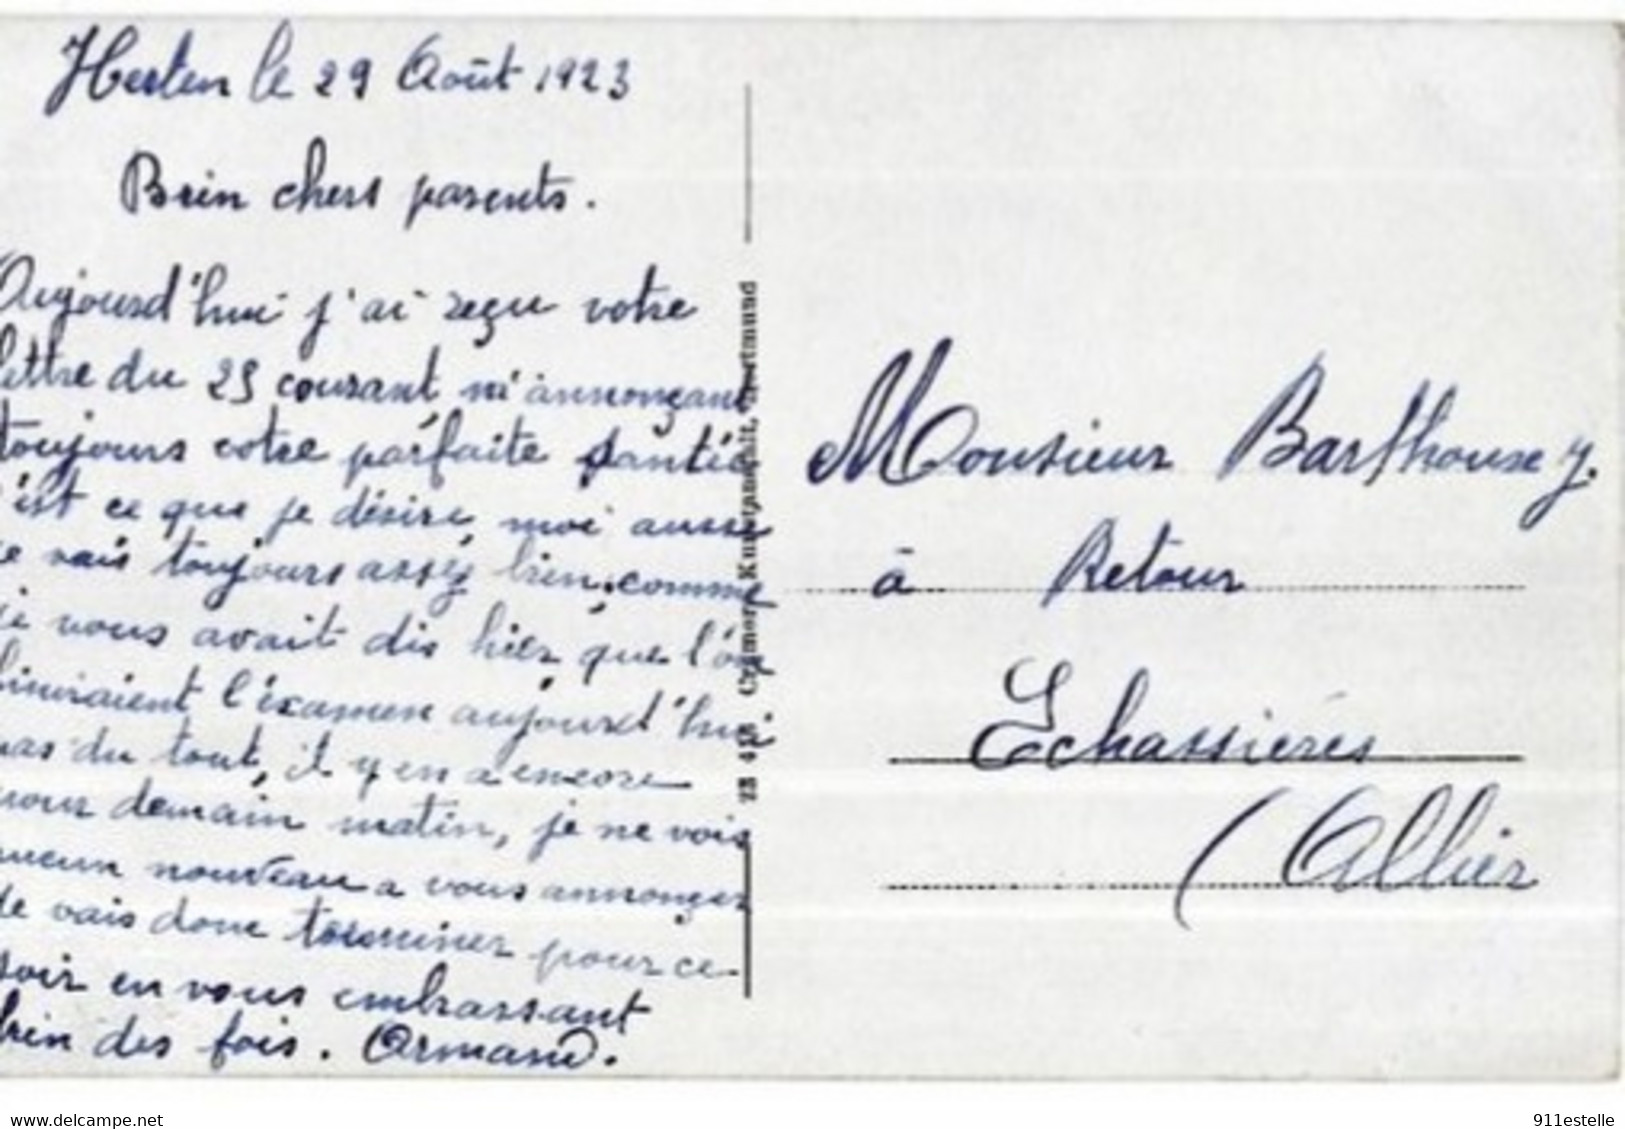 Herten le 29 Août 1923
Bien chers parents.
Aujourd'hui j'ai reçu votre
lettre du 25 courant m'annonçant
toujours votre parfaite santée
c'est ce que je désire, moi aussi
je vais toujours assez bien, comme
je vous avait dis hier, que l'on
finiraient l'éxamen aujourd'hui
pas du tout, il y en a encore
pour demain matin, je ne vois
aucun nouveau a vous annonçer
Je vais donc terminer pour ce
soir en vous embrassant
bien des fois. Armand.
Cramers Kunstanstalt, Dortmund
Monsieur Barthoux J.
à Retour
Echassières
(Allier
delcampe.net
911estelle